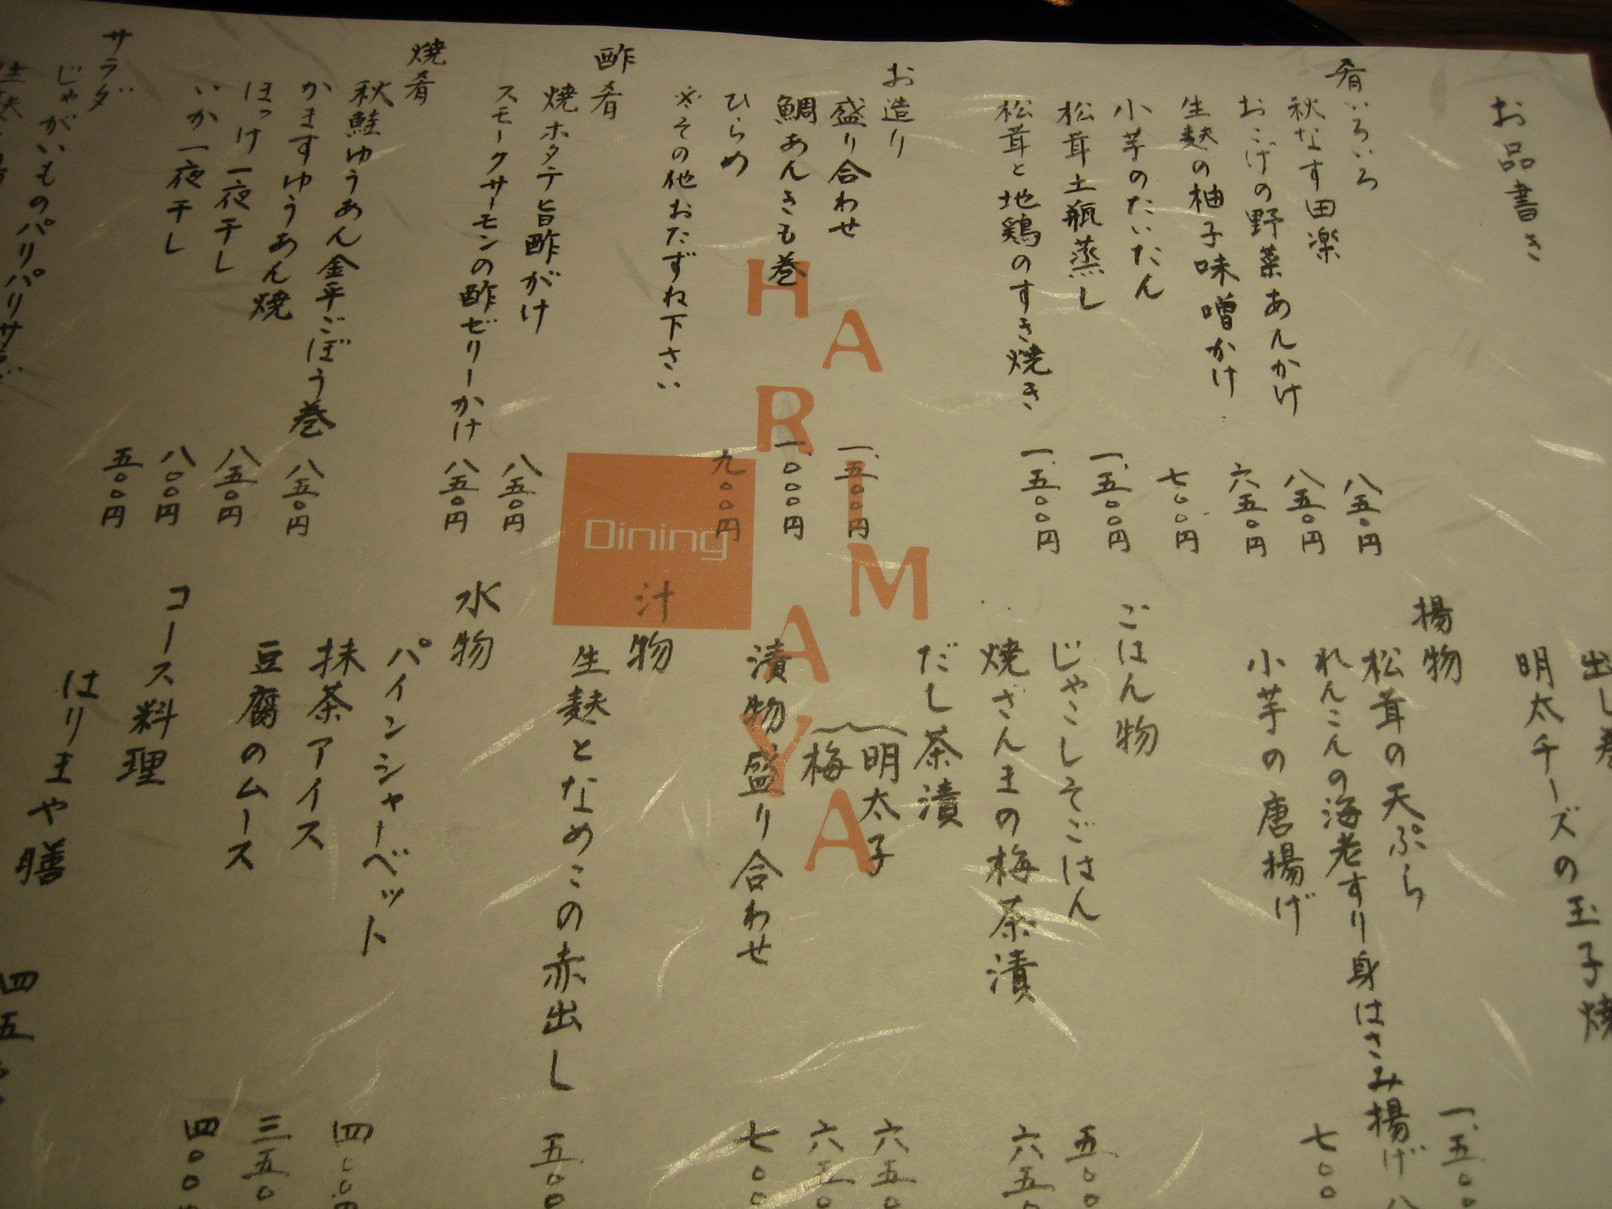 お品書き
肴いろいろ
秋なす田楽
八五〇円
おこげの野菜あんかけ
八五〇円
生麩の柚子味噌かけ
六五〇円
小芋のたいたん
七〇〇円
松茸土瓶蒸し
一、五〇〇円
松茸と地鶏のすき焼き
一、五〇〇円
お造り
盛り合わせ
一、五〇〇円
鯛あんきも巻
一、〇〇〇円
ひらめ
九〇〇円
※その他おたずね下さい
酢肴
焼ホタテ旨酢がけ
八五〇円
スモークサーモンの酢ゼリーかけ
八五〇円
焼肴
秋鮭ゆうあん金平ごぼう巻
八五〇円
かますゆうあん焼
八五〇円
ほっけ一夜干し
八〇〇円
いか一夜干し
五〇〇円
サラダ
じゃがいものパリパリサラダ
出し巻
明太チーズの玉子焼
揚物
松茸の天ぷら
一、五〇〇
れんこんの海老すり身はさみ揚げ
八
小芋の唐揚げ
七〇〇
ごはん物
じゃこしそごはん
五〇〇
焼さんまの梅茶漬
六五〇
だし茶漬
明太子
六五〇
梅
六五〇
漬物盛り合わせ
七〇〇
汁物
生麩となめこの赤出し
五〇〇
水物
パインシャーベット
四〇〇円
抹茶アイス
三五〇
豆腐のムース
四〇〇
コース料理
はり王や膳
四五
HARIMAYA
Dining